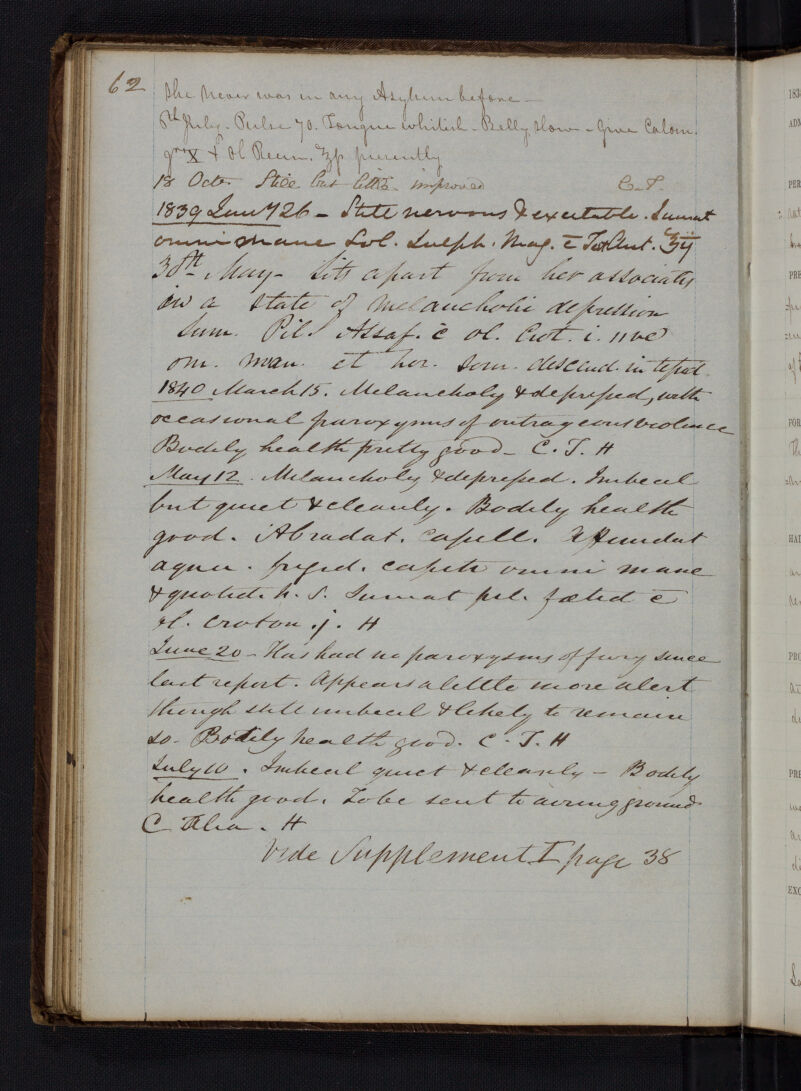 62
She never was in any Asylum before —
8th July. Pulse 70. Tongue whitish. Belly slow. Give Calom.
grs X & Ol Ricin. presently
18 Octr Still but little improved C.T.
1839 Jany 26 – Still nervous & excitable. Sumat
omni mane Sol. Sulph. Mag. c̄ Tart. Ant. ℥ij
30th May – Sits apart from her associates
in a state of melancholic depression
Sum. Pil. Assaf. c̄ ol. Crot. i.
om. man. et hor. som. descend. in
1840 March 15. Melancholy & depressed, with
occasional paroxysms of outrageous violence
Bodily health pretty good – C. T. H
May 12. Melancholy & depressed. Imbecil
but quiet & cleanly. Bodily health
good. Abradat. capill. Affundat
aqua. frigid. capite omni mane
& quotidie h. S. Sumat pil. fœtid c̄
ol. croton. j. H
June 20 – Has had no paroxysms of fury since
last report. Appears a little more alert
though still imbecil & likely to remain
so. Bodily health good. C. T. H
July 10. Imbecil quiet & cleanly – Bodily
health good. To be sent to airing ground
C Alia. H
Vide Supplement I page 38
183
ADM
PER
PRE
FOR
HAB
PRO
PRE
EXC